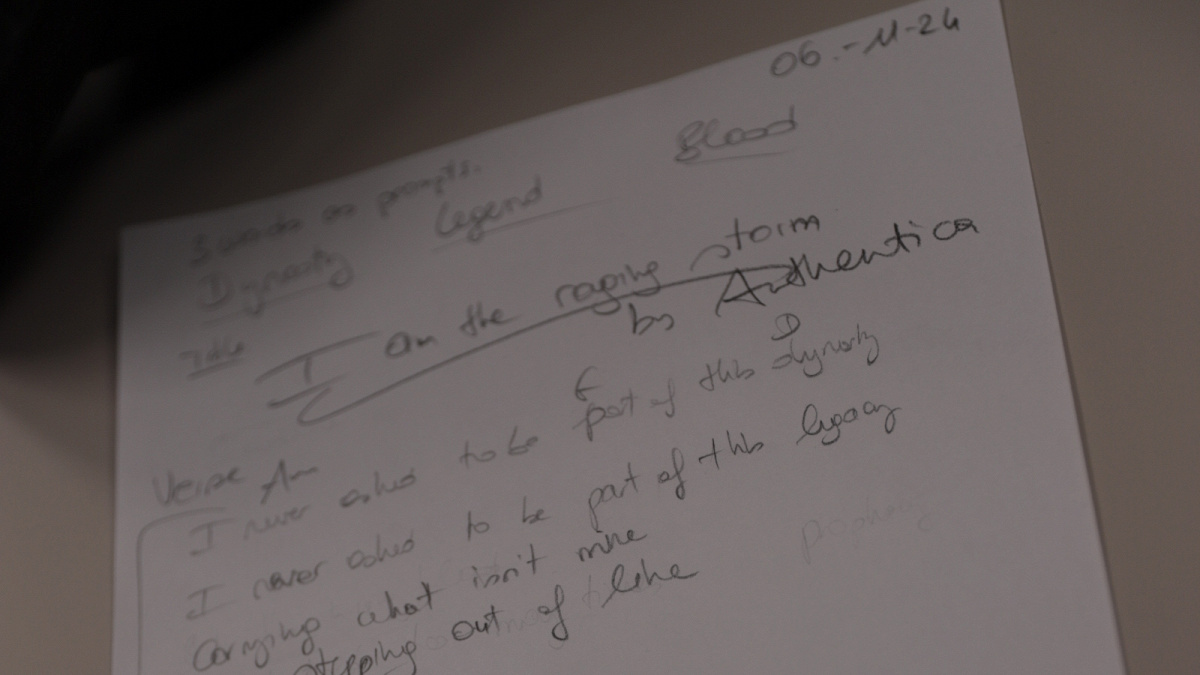 06.-11-24
Blood
3 words as prompts.
Dynasty Legend
Title I am the raging storm
by Authentica
Verse Am
E D
I never asked to be part of this dynasty
I never asked to be part of this legacy
Carrying what isn't mine
stepping out of line
prophecy